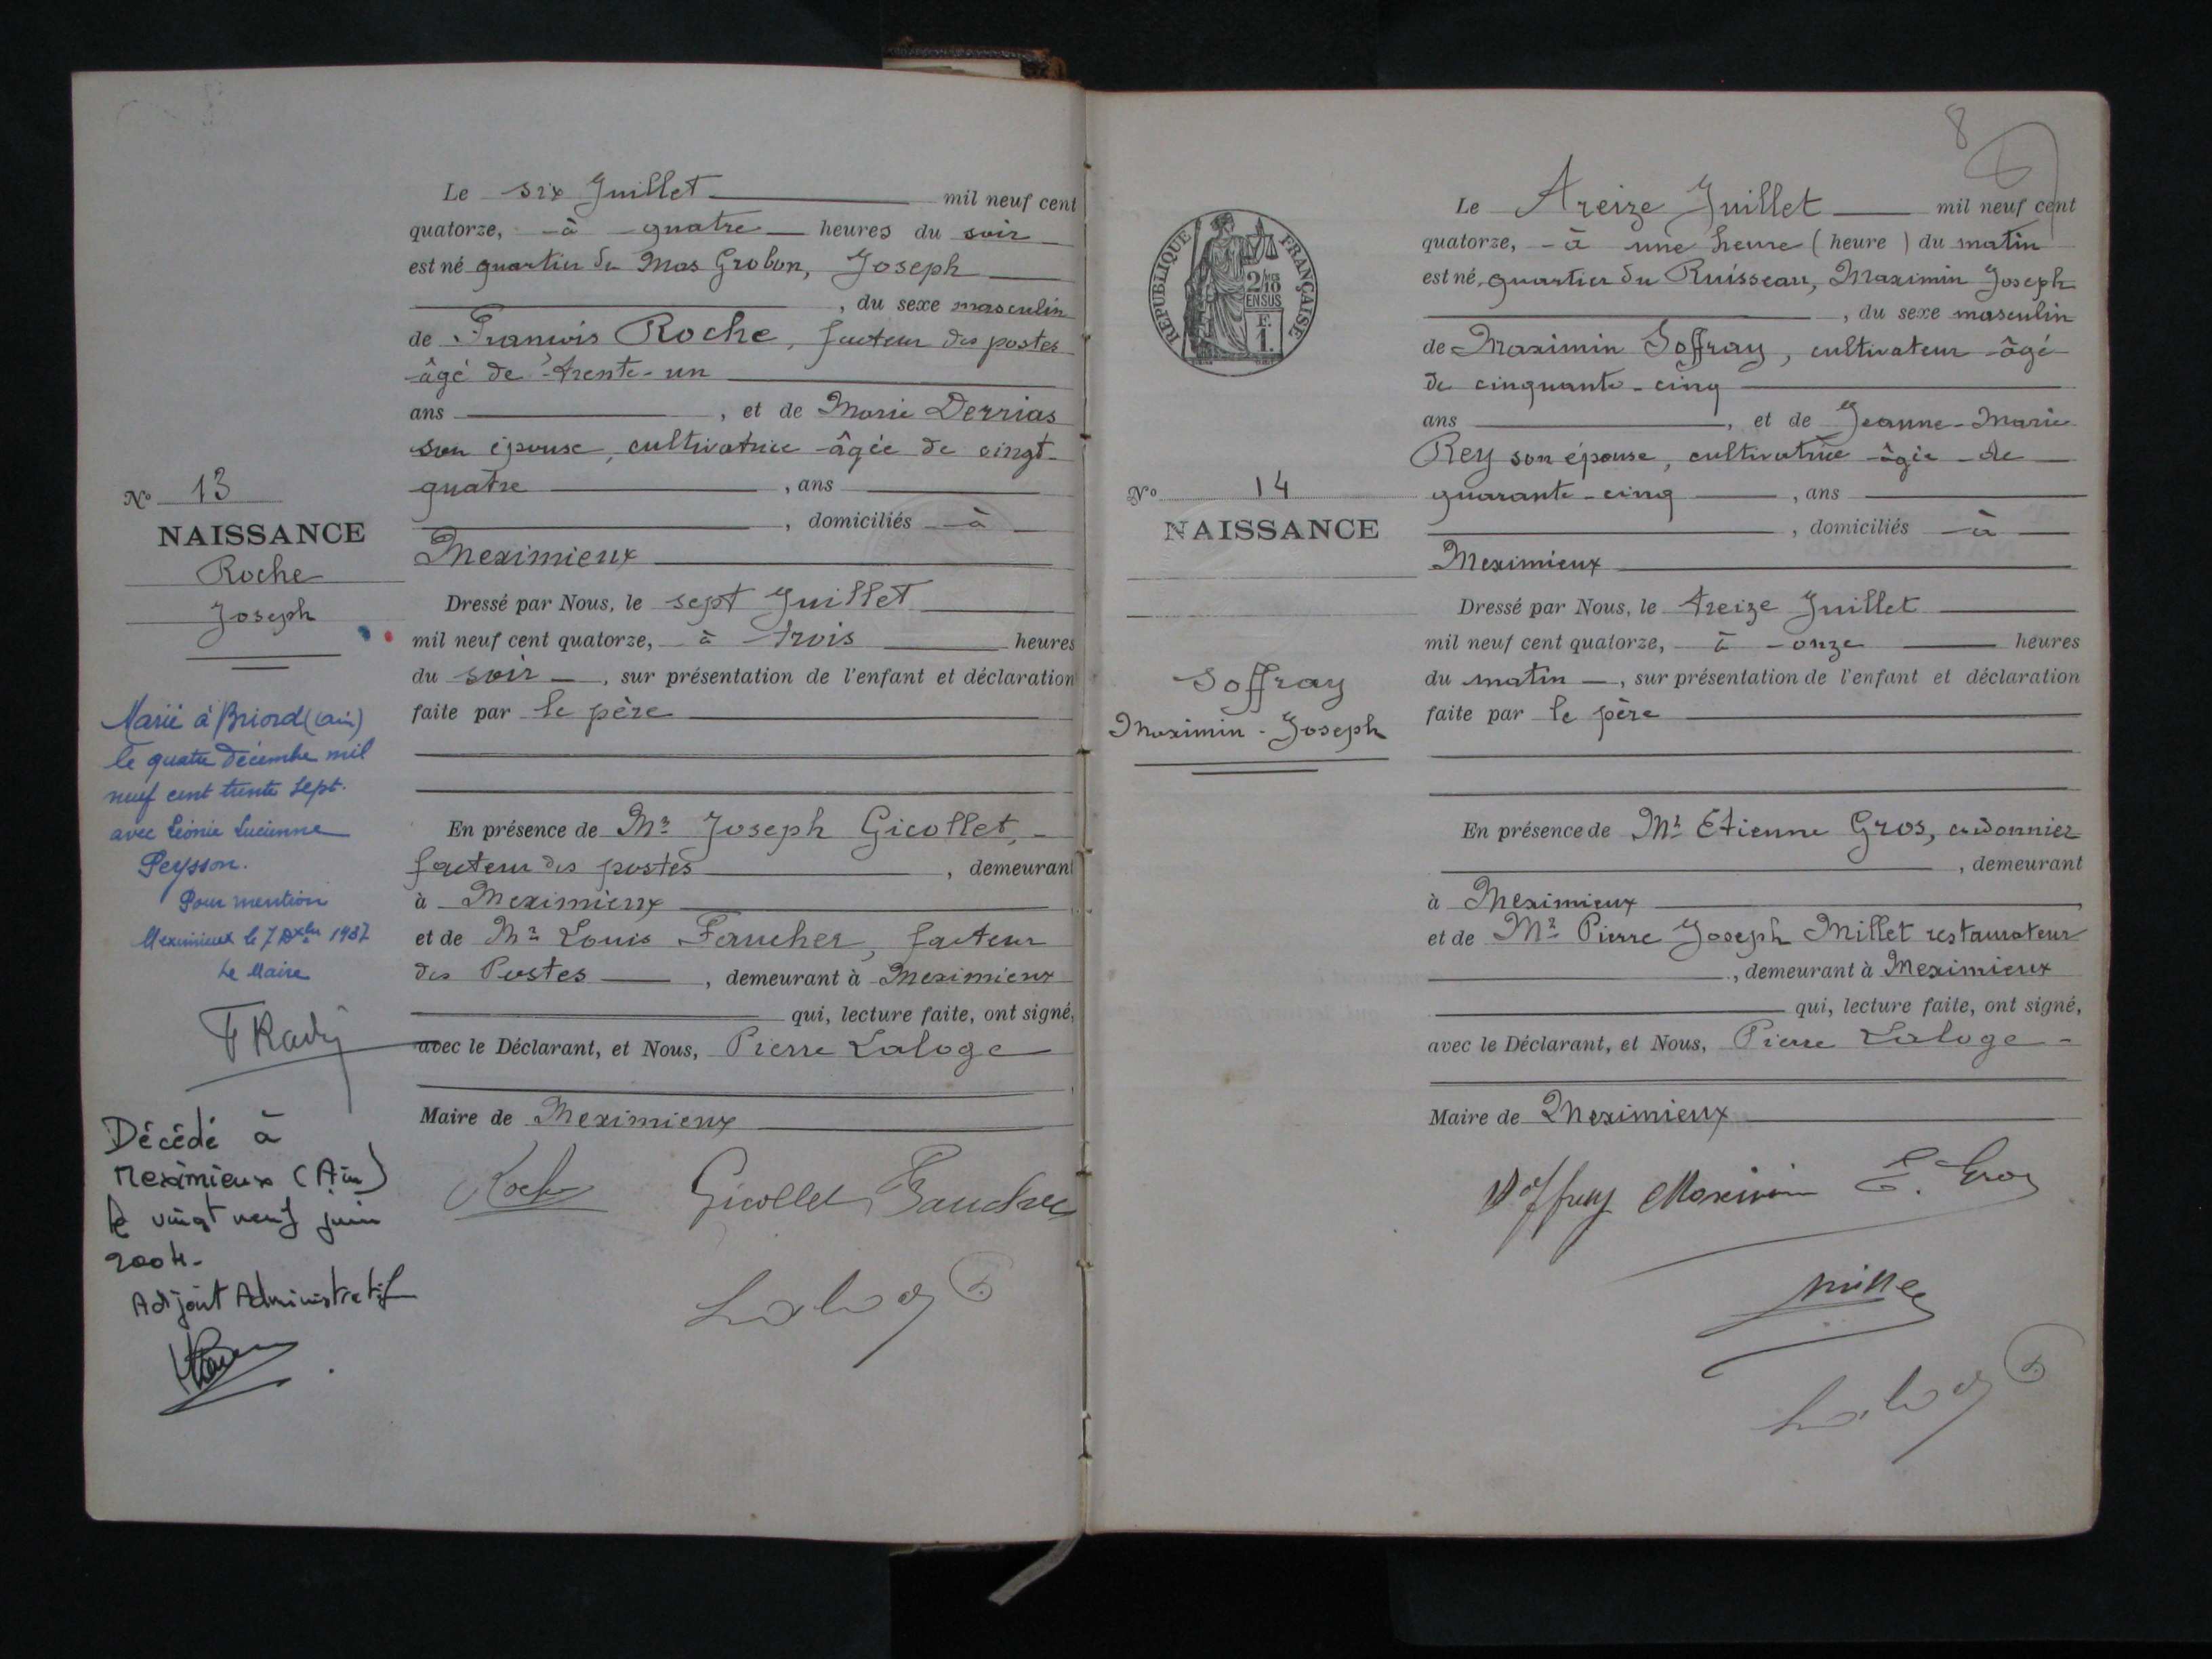 Le six Juillet mil neuf cent
quatorze, à quatre heures du soir
est né quartier du Mas Grobon, Joseph
, du sexe masculin
de François Roche, facteur des postes
âgé de trente-un
ans , et de Marie Derrias
son épouse, cultivatrice âgée de vingt-
quatre , ans
, domiciliés à
Meximieux
Dressé par Nous, le sept Juillet
mil neuf cent quatorze, à trois heures
du soir , sur présentation de l'enfant et déclaration
faite par le père
En présence de Mr Joseph Gicollet,
facteur des postes , demeurant
à Meximieux
et de Mr Louis Faucher, facteur
des Postes , demeurant à Meximieux
qui, lecture faite, ont signé,
avec le Déclarant, et Nous, Pierre Laloge
Maire de Meximieux
Roche Gicollet Faucher
Laloge
No 13
NAISSANCE
Roche
Joseph
Marié à Briord (ain)
le quatre décembre mil
neuf cent trente sept.
avec Léonie Lucienne
Peysson.
Pour mention
Meximieux le 7 Dxbre 1937
Le Maire
Décédé à
Meximieux (Ain)
le vingt neuf juin
2004.
Adjoint Administratif
8
REPUBLIQUE FRANÇAISE
2/10
EN SUS
F.
1.
Le Treize Juillet mil neuf cent
quatorze, à une heure (heure) du matin
est né, quartier du Ruisseau, Maximin Joseph
, du sexe masculin
de Maximin Soffray, cultivateur âgé
de cinquante-cinq
ans , et de Jeanne-Marie
Rey son épouse, cultivatrice âgée de
quarante-cinq , ans
, domiciliés à
Meximieux
Dressé par Nous, le treize Juillet
mil neuf cent quatorze, à onze heures
du matin , sur présentation de l'enfant et déclaration
faite par le père
En présence de Mr Etienne Gros, cordonnier
, demeurant
à Meximieux
et de Mr Pierre Joseph Millet restaurateur
, demeurant à Meximieux
qui, lecture faite, ont signé,
avec le Déclarant, et Nous, Pierre Laloge
Maire de Meximieux
Soffray Maximin E. Gros
Millet
Laloge
No 14
NAISSANCE
Soffray
Maximin-Joseph